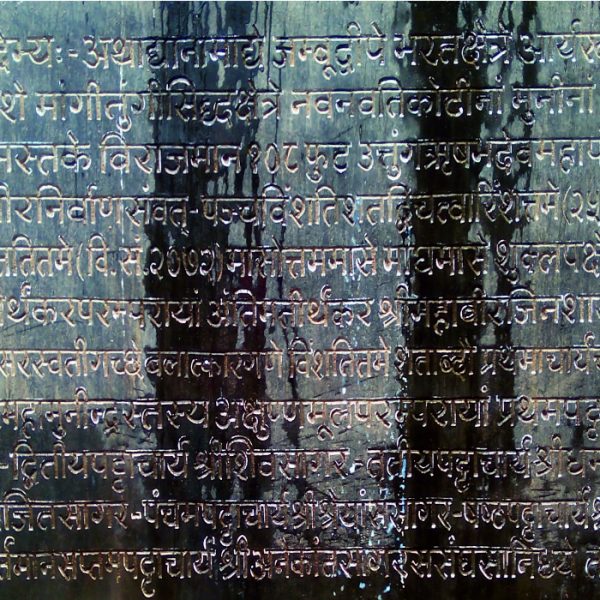 देभ्यः-अथाद्यानामाद्ये जम्बूद्वीपे भरतक्षेत्रे आर्यख
शे मांगीतुंगीसिद्धक्षेत्रे नवनवतिकोटीनां मुनीनां
मस्तके विराजमान १०८ फुट उत्तुंगऋषभदेवमहाप
वीरनिर्वाणसंवत्-पञ्चविंशतिशतद्विचत्वारिंशत्तमे(२५
प्ततितमे(वि.सं.२०७२)मासोत्तममासे माघमासे शुक्लपक्षे
र्थंकरपरम्परायां अंतिमतीर्थंकर श्रीमहावीरजिनशा
सरस्वतीगच्छे बलात्कारगणे विंशतितमे शताब्दौ प्रथमाचार्य
महामुनीन्द्रस्तस्य अक्षुण्णमूलपरम्परायां प्रथमपट्ट
-द्वितीयपट्टाचार्य श्रीशिवसागर-तृतीयपट्टाचार्य श्रीधर्म
अजितसागर-पंचमपट्टाचार्य श्रीश्रेयांससागर-षष्ठपट्टाचार्य
र्तमानसप्तमपट्टाचार्य श्रीअनेकांतसागर ससंघसानिध्ये